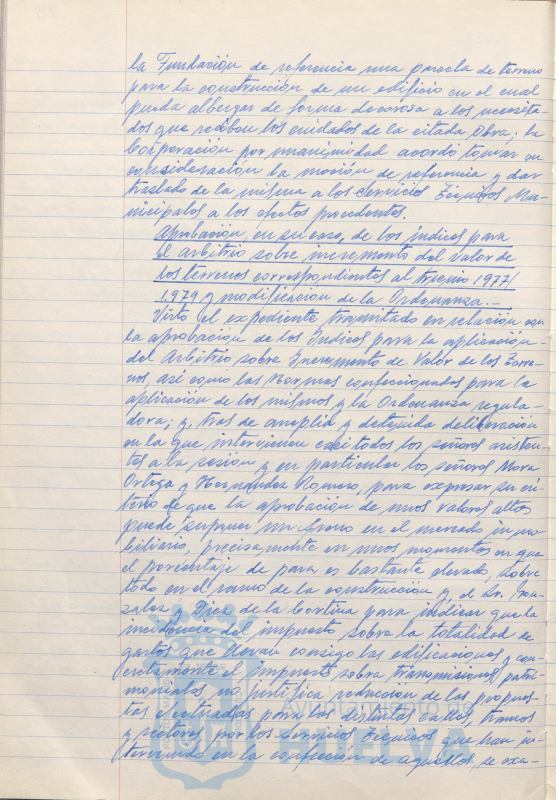 la Fundación de referencia una parcela de terreno
para la construcción de un edificio en el cual
pueda albergar de forma decorosa a los necesita-
dos que reciban los cuidados de la citada Obra; la
Corporación por unanimidad acordó tomar en
consideración la moción de referencia y dar
traslado de la misma a los Servicios Técnicos Mu-
nicipales a los efectos procedentes.
Aprobación, en su caso, de los índices para
el arbitrio sobre incremento del valor de
los terrenos correspondientes al trienio 1977/
1979 y modificación de la Ordenanza.-
Visto el expediente tramitado en relación con
la aprobación de los Indices para la aplicación
del Arbitrio sobre Incremento de Valor de los Terre-
nos, así como las Normas confeccionadas para la
aplicación de los mismos y la Ordenanza regula-
dora; y, tras de amplia y detenida deliberación
en la que intervienen casi todos los señores asisten-
tes a la sesión y en particular los señores Mora
Ortega y Hernández Romero, para expresar su cri-
terio de que la aprobación de unos valores altos
puede suponer un freno en el mercado inmo-
biliario, precisamente en unos momentos en que
el porcentaje de paro es bastante elevado, sobre
todo en el ramo de la construcción y, el Sr. Gon-
zález y Díez de la Cortina para indicar que la
incidencia del impuesto sobre la totalidad de
gastos que llevan consigo las edificaciones y con-
cretamente el impuesto sobre transmisiones patri-
moniales no justifica reducción de las propues-
tas efectuadas para las distintas calles, tramos
y sectores por los Servicios Técnicos que han in-
tervenido en la confección de aquellos, se exa-
Ayuntamiento de
HUELVA